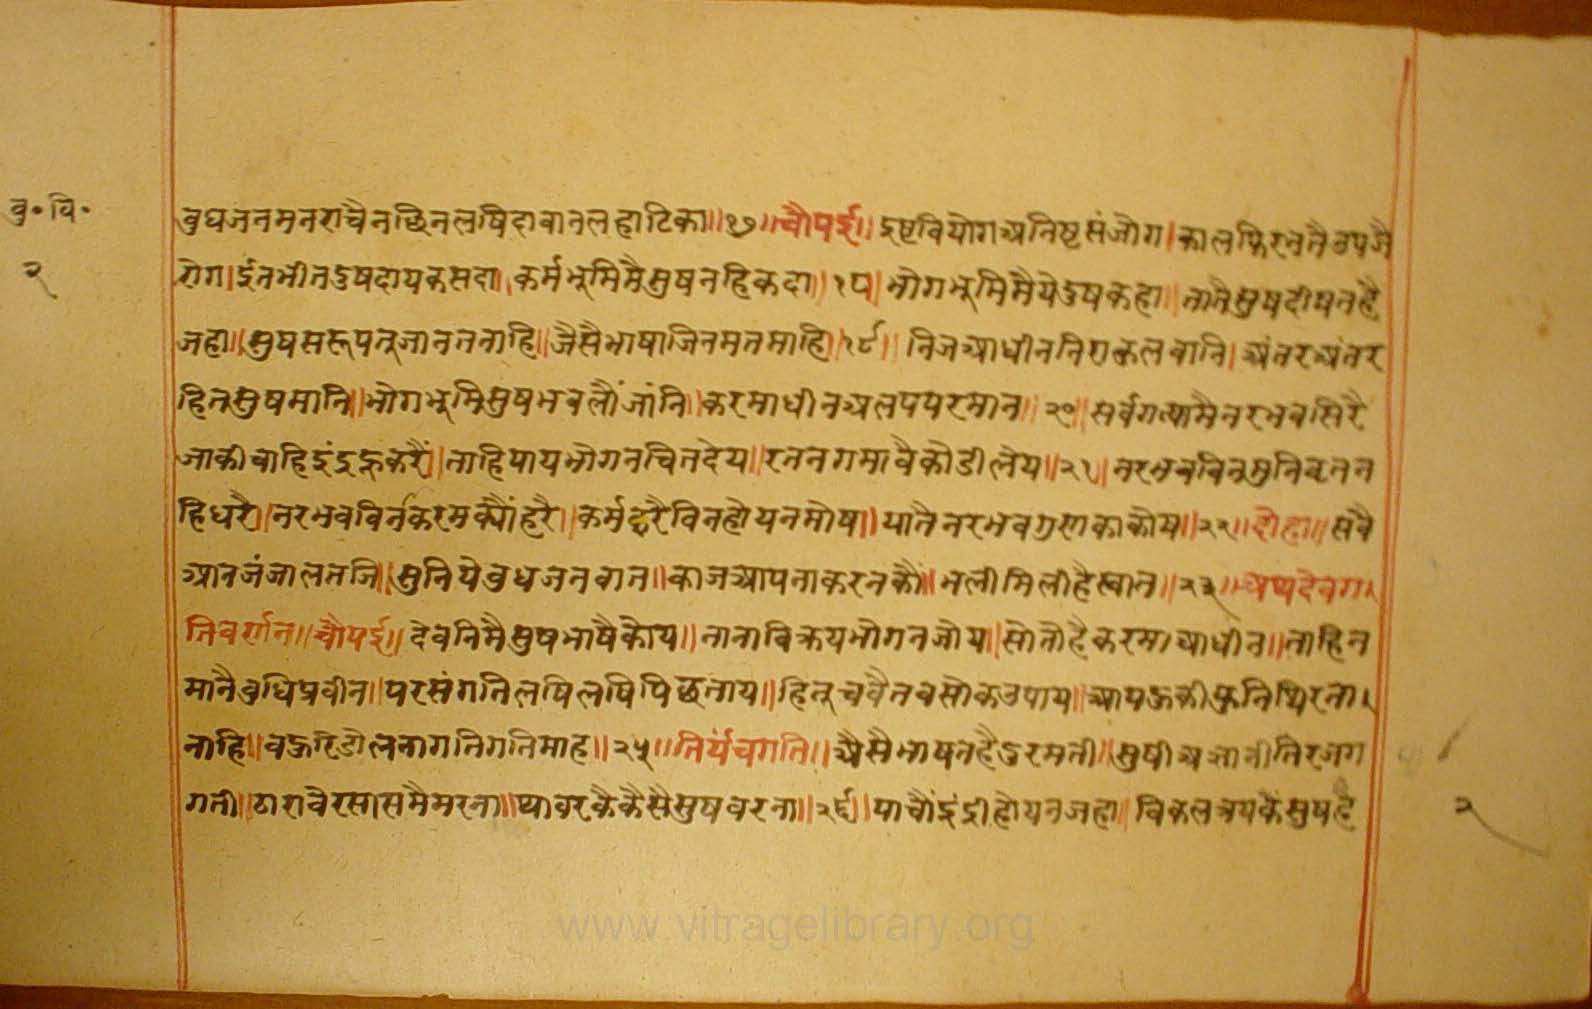 बु॰ वि॰
२
बुधजनमनराचैनछिनलषिदावानलहाटिका॥१७॥चौपई॥इष्टवियोगअनिष्टसंजोग।कालफिरनतैउपजै
रोग।ईतभीतदुषदायकसदा।कर्मभूमिमैसुषनहिकदा॥१८॥भोगभूमिमैयेदुषकहा॥तातैसुषदीयतहै
जहा॥सुषसरूपतूजानतनाहि॥जैसैभाषाजिनमतमाहि॥१९॥निजआधीननिराकुलवानि।अंतरअंतर
हितसुषमानि॥भोगभूमिसुषभवलौंजांनि॥करमाधीनअलपपरमान॥२०॥सर्वगत्यामैनरभवसिरै
जाकीवाहिइंद्रहूकरैं॥ताहिपायभोगनचितदेय॥रतनगमावैकोडीलेय॥२१॥नरभवविनमुनिव्रतन
हिधरै॥नरभवविनकरमक्यौंहरै॥कर्महरैविनहोयनमोष॥यातैनरभवगुणकाकोय॥२२॥दोहा॥सवै
आनजंजालतजि॥सुनियेवुधजनवात॥काजआपनाकरनकौ॥भलीमिलीहैस्वात॥२३॥अथदेवग।
तिवर्णन॥चौपई॥देवनिमैसुषभाषैकोय॥नानाविक्रयभोगनजोय॥सोतोहैकरमाआधीन॥ताहिन
मानैवुधिप्रवीन॥परसंगतिलषिलषिपिछताय॥हितूचवैतवसोकउपाय॥आपऊकीफुनिथिरता।
नाहि॥वऊरिडोलनागतिगतिमाह॥२५॥तिर्यंचगति॥अैसैभाषतहैदुरमती॥सुषीअज्ञानीतिरजग
गती॥ठाराचैरसासमैमरना॥थावरकैकैसैसुषवरना॥२६॥पाचौंइंद्रीहोयनजहा॥विकलत्रयकैसुषहै
२
www.vitragelibrary.org